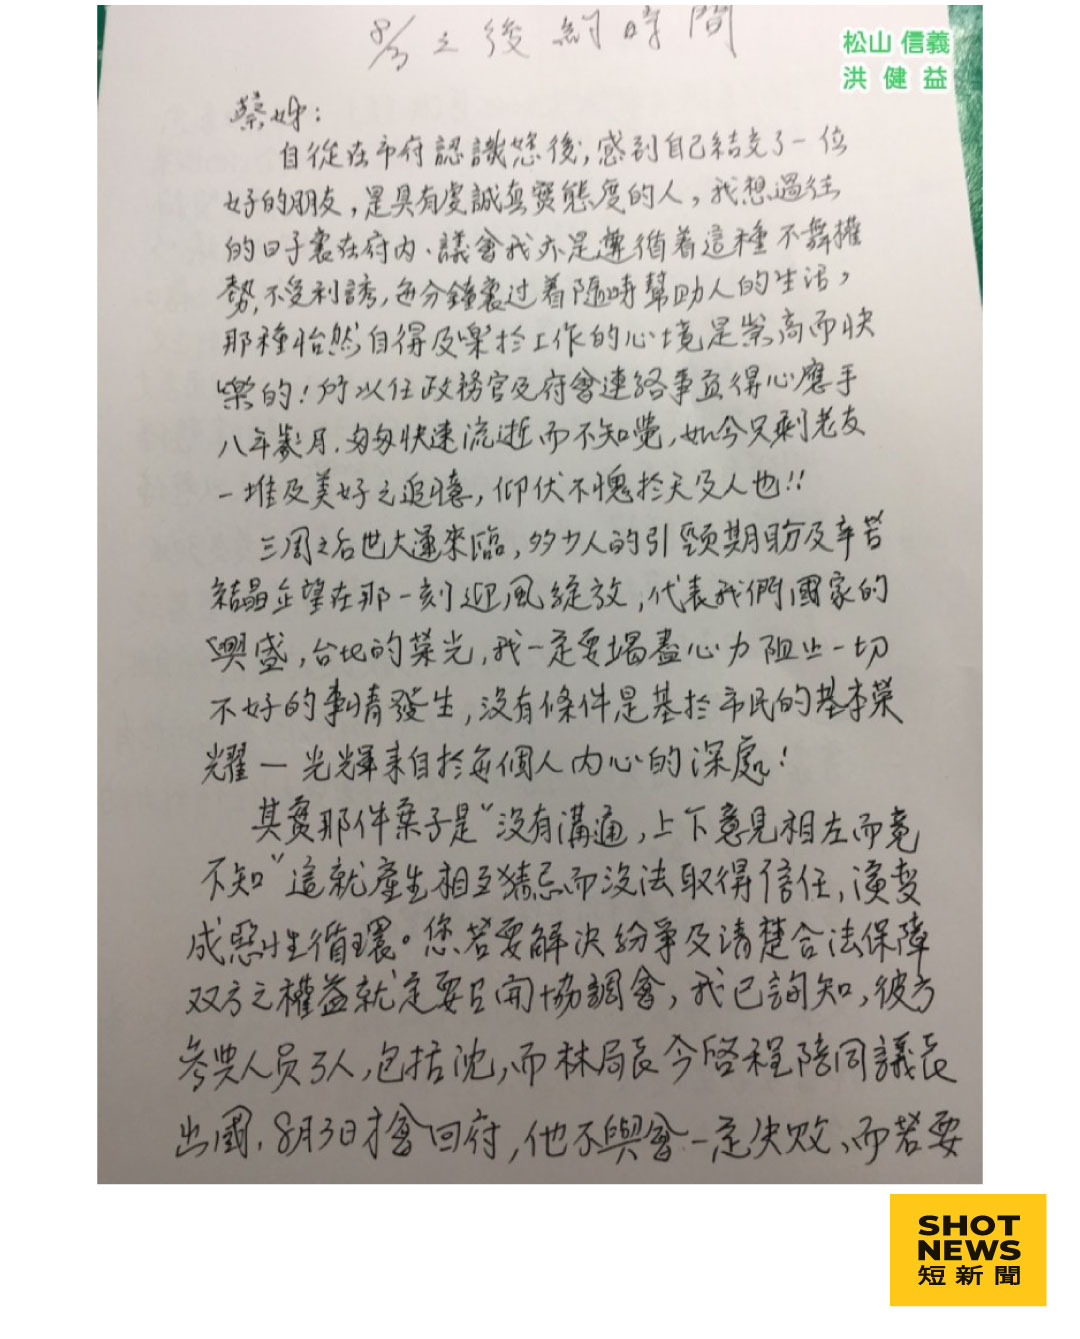 8/3之後約時間
松山 信義
洪健益
蔡姊：
自從在市府認識您後，感到自己結交了一位
好的朋友，是具有虔誠真實態度的人，我想過往
的日子裏在府內、議會我亦是遵循着這種不舞權
勢，不受利誘，每分鐘裏过着隨時幫助人的生活，
那種怡然自得及樂於工作的心境是崇高而快
樂的！所以任政務官及府會連絡事宜得心應手
八年歲月，匆匆快速流逝而不知覺，如今只剩老友
一堆及美好之追憶，仰伏不愧於天及人也!!
三周之后世大運來臨，多少人的引頸期盼及辛苦
結晶企望在那一刻迎風綻放，代表我們國家的
興盛，台北的榮光，我一定要竭盡心力阻止一切
不好的事情發生，沒有條件是基於市民的基本榮
耀－光輝來自於每個人內心的深處！
其實那件案子是"沒有溝通，上下意見相左而竟
不知"這就產生相互猜忌而沒法取得信任，演变
成惡性循環。您若要解決紛爭及清楚合法保障
双方之權益就一定要召開協調會，我已詢知，彼方
參與人员3人，包括沈，而林局長今啓程陪同議長
出國，8月3日才會回府，他不與會一定失敗、而若要
SHOT
NEWS
短新聞